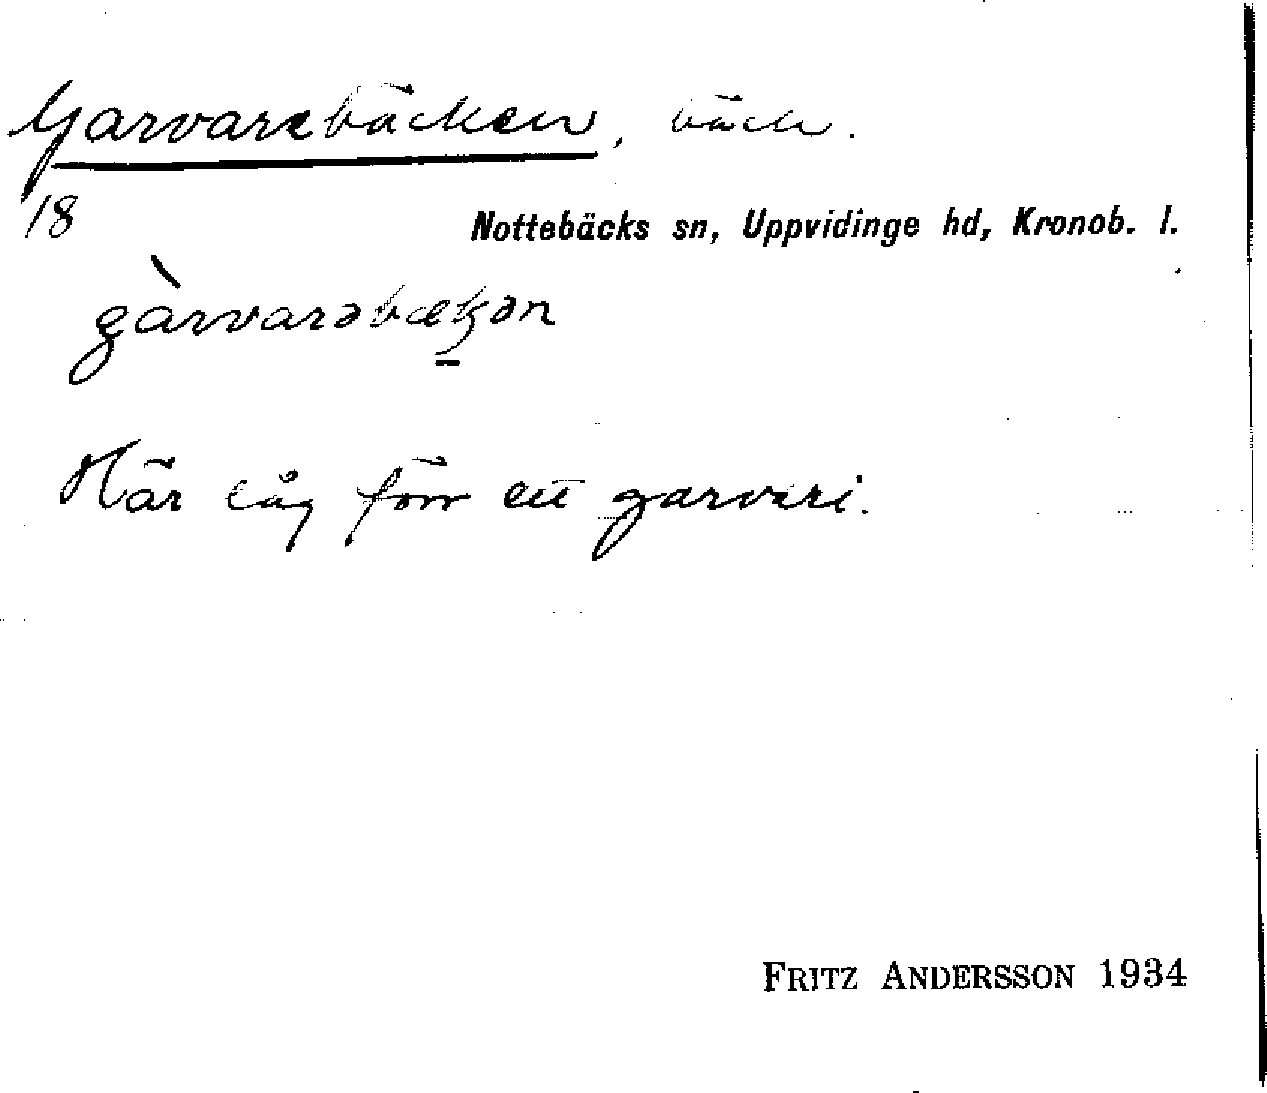 Garvarebäcken, bäck.
18
Nottebäcks sn, Uppvidinge hd, Kronob. l.
gàrvarəbækən
Här låg förr ett garveri.
FRITZ ANDERSSON 1934